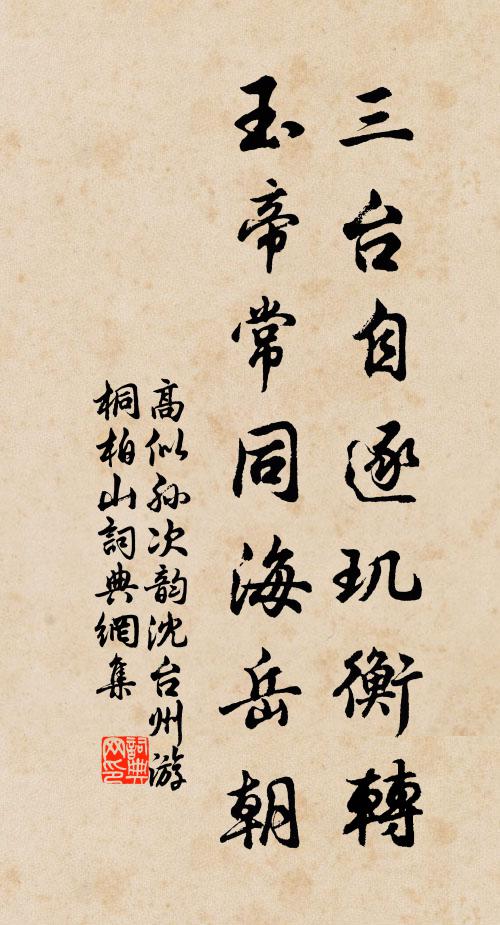 三台自逐玑衡轉
玉帝常同海岳朝
高似孙次韵沈台州游
桐柏山詞典網集
詞典
网印